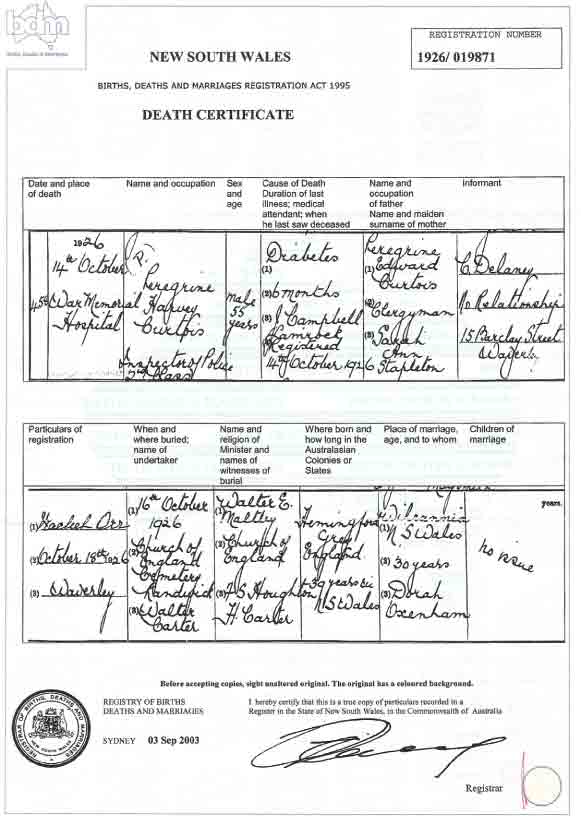 bdm
REGISTRATION NUMBER
1926/ 019871
NEW SOUTH WALES
BIRTHS, DEATHS AND MARRIAGES REGISTRATION ACT 1995
DEATH CERTIFICATE
Date and place
of death
Name and occupation
Sex
and
age
Cause of Death
Duration of last
illness; medical
attendant; when
he last saw deceased
Name and
occupation
of father
Name and maiden
surname of mother
Informant
1926
14th October
War Memorial
Hospital
Peregrine
Harvey
Curtois
Inspector of Police
2nd Class
Male
55
years
Diabetes
(1)
(2) 6 months
(3) J Campbell
Lamrock
Registered
(4) 14th October 1926
Peregrine
(1) Edward
Curtois
(2) Clergyman
(3) Sarah
Ann
Stapleton
C Delaney
No Relationship
15 Barclay Street
Waverley
Particulars of
registration
When and
where buried;
name of
undertaker
Name and
religion of
Minister and
names of
witnesses of
burial
Where born and
how long in the
Australasian
Colonies or
States
Place of marriage,
age, and to whom
Children of
marriage
(1) Orr
(2) October 18th 1926
(3) Waverley
(1) 16th October
1926
(2) Church of
England
Cemetery
Randwick
(3) Walter
Carter
Walter E.
(1) Maltby
(2) Church of
England
(3) F S Houghton
H. Carter
Hemingford
Grey
England
39 years in
N S Wales
Wilcannia
(1) N S Wales
(2) 30 years
(3) Dorah
Oxenham
years.
no issue
Before accepting copies, sight unaltered original. The original has a coloured background.
REGISTRY OF BIRTHS
DEATHS AND MARRIAGES
SYDNEY 03 Sep 2003
I hereby certify that this is a true copy of particulars recorded in a
Register in the State of New South Wales, in the Commonwealth of Australia
Registrar
REGISTRAR OF BIRTHS, DEATHS AND MARRIAGES
NEW SOUTH WALES